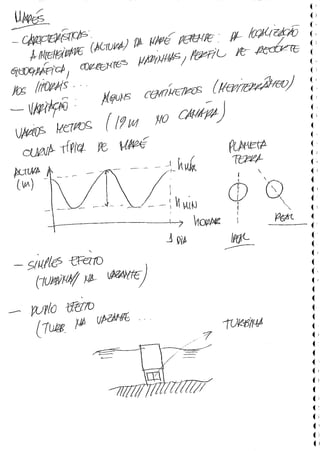 MARÉS
— CARACTERÍSTICAS:
A INTENSIDADE (ALTURA) DA MARÉ DEPENDE: DA LOCALIZAÇÃO
GEOGRÁFICA, CORRENTES MARINHAS, PERFIL DE RECORTE
DOS LITORAIS...
— VARIAÇÃO: ALGUNS CENTÍMETROS (MEDITERRÂNEO)
VÁRIOS METROS (19m NO CANADÁ)
CURVA TÍPICA DE MARÉ
PLANETA
TERRA
ALTURA
(m)
h MÁX
h MIN
HORAS
1 DIA
IDEAL
REAL
— SIMPLES EFEITO
(TURBINA// NA VAZANTE)
— DUPLO EFEITO
(TURB. NA VAZANTE ...
TURBINA